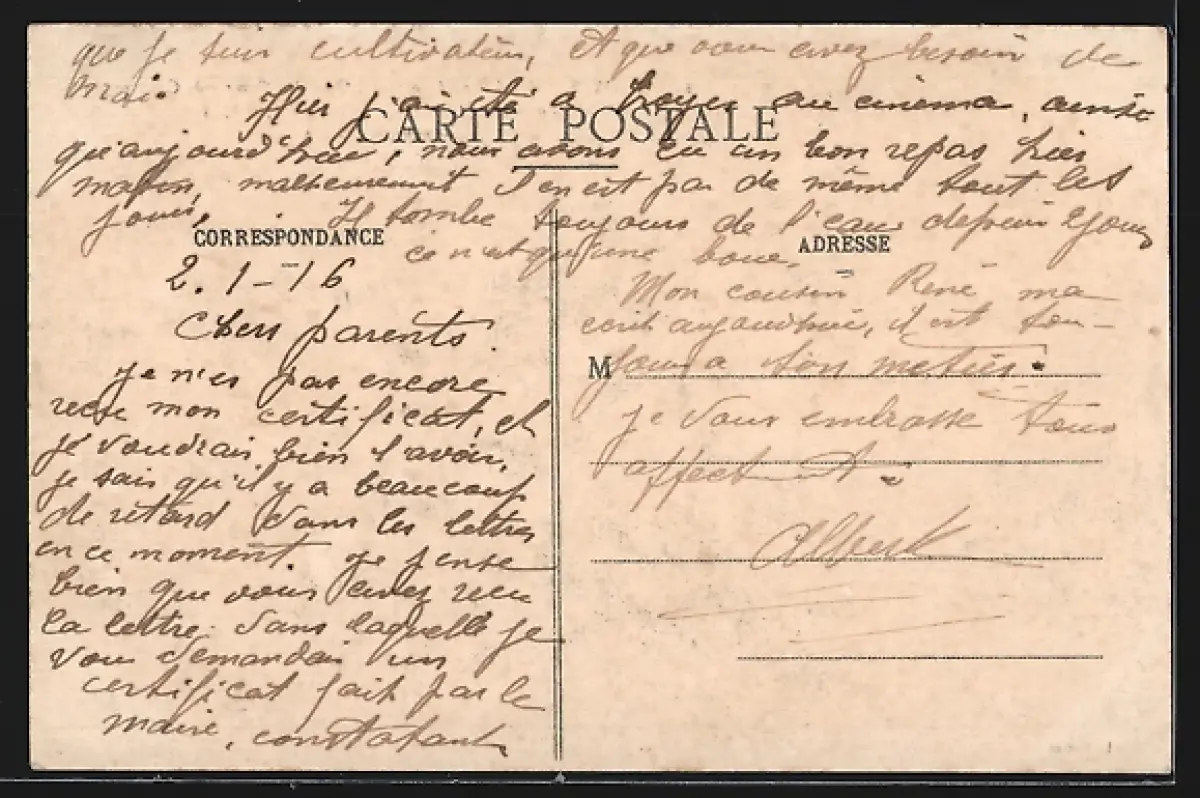 que je suis cultivateur, Et que vous avez besoin de
moi.
Hier j'ai été a Troyes au cinema, ainsi
CARTE POSTALE
qu'aujourd'hui, nous avons eu un bon repas hier
matin, malheureusemt s'en est pas de même tout les
jours. Il tombe toujours de l'eau depuis 2 jours
ce n'est qu'une boue.
CORRESPONDANCE
2.1-16
Chers parents.
Je n'es pas encore
recu mon certificat, et
je voudrais bien l'avoir,
je sais qu'il y a beaucoup
de retard dans les lettres
en ce moment. Je pense
bien que vous avez recu
la lettre dans laquelle je
vous demandais un
certificat fait par le
maire, constatant
ADRESSE
Mon cousin René ma
ecrit aujourd'hui, il est tou-
M
jours a son metier.
Je vous embrasse tous
affect-t.
Albert